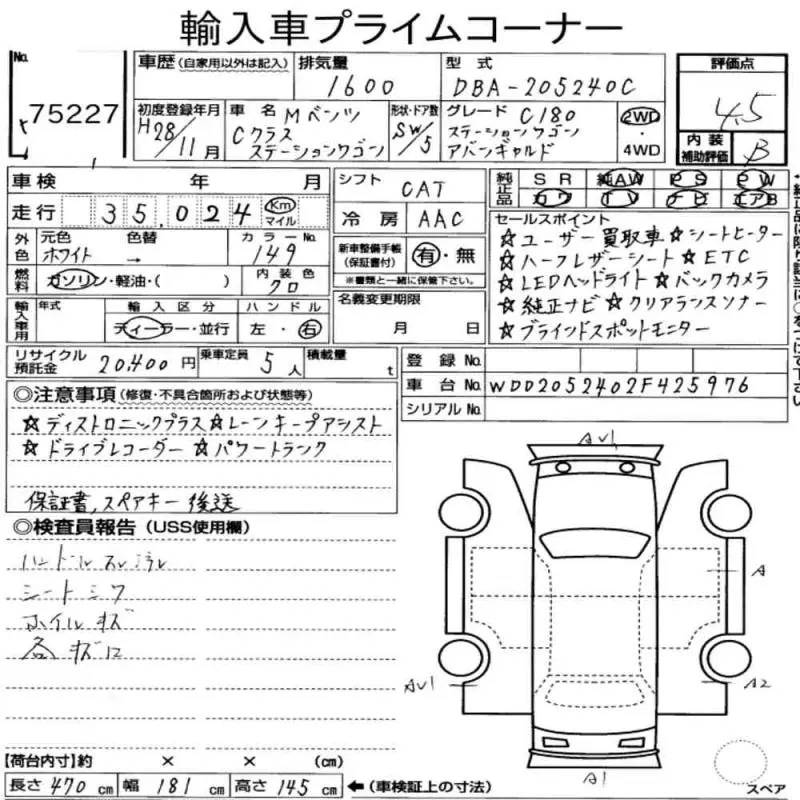 輸入車プライムコーナー
No.
75227
車歴（自家用以外は記入）
排気量
1600
型式
DBA-205240C
評価点
4.5
初度登録年月
H28/11月
車名 Mベンツ
Cクラス
ステーションワゴン
形状・ドア数
SW/5
グレード C180
ステーションワゴン
アバンギャルド
2WD
・
4WD
内装
補助評価
B
車検 年 月
シフト
CAT
純正品
SR 純AW PS PW
カワ TV ナビ エアB
走行 35,024 Km
マイル
冷房 AAC
セールスポイント
☆ユーザー買取車☆シートヒーター
☆ハーフレザーシート☆ETC
☆LEDヘッドライト☆バックカメラ
☆純正ナビ☆クリアランスソナー
☆ブラインドスポットモニター
外色
元色 色替 カラーNo.
ホワイト → 149
新車整備手帳
（保証書付）
有・無
※書類と一緒に保管下さい。
燃料
ガソリン・軽油・( )
内装色
クロ
名義変更期限
月 日
輸入車用
年式 輸入区分 ハンドル
ディーラー・並行 左・右
リサイクル
預託金
20,400円
乗車定員 5人
積載量 t
登録No.
車台No. WDD2052402F425976
シリアルNo.
◎注意事項（修復・不具合箇所および状態等）
☆ディストロニックプラス☆レーンキープアシスト
☆ドライブレコーダー☆パワートランク
保証書,スペアキー後送
◎検査員報告（USS使用欄）
ハンドルスレ
シートシワ
ホイルキズ
各キズ
AV1
A
AV1
A2
A1
スペア
【荷台内寸】約 × × (cm)
長さ 470 cm 幅 181 cm 高さ 145 cm ←（車検証上の寸法）